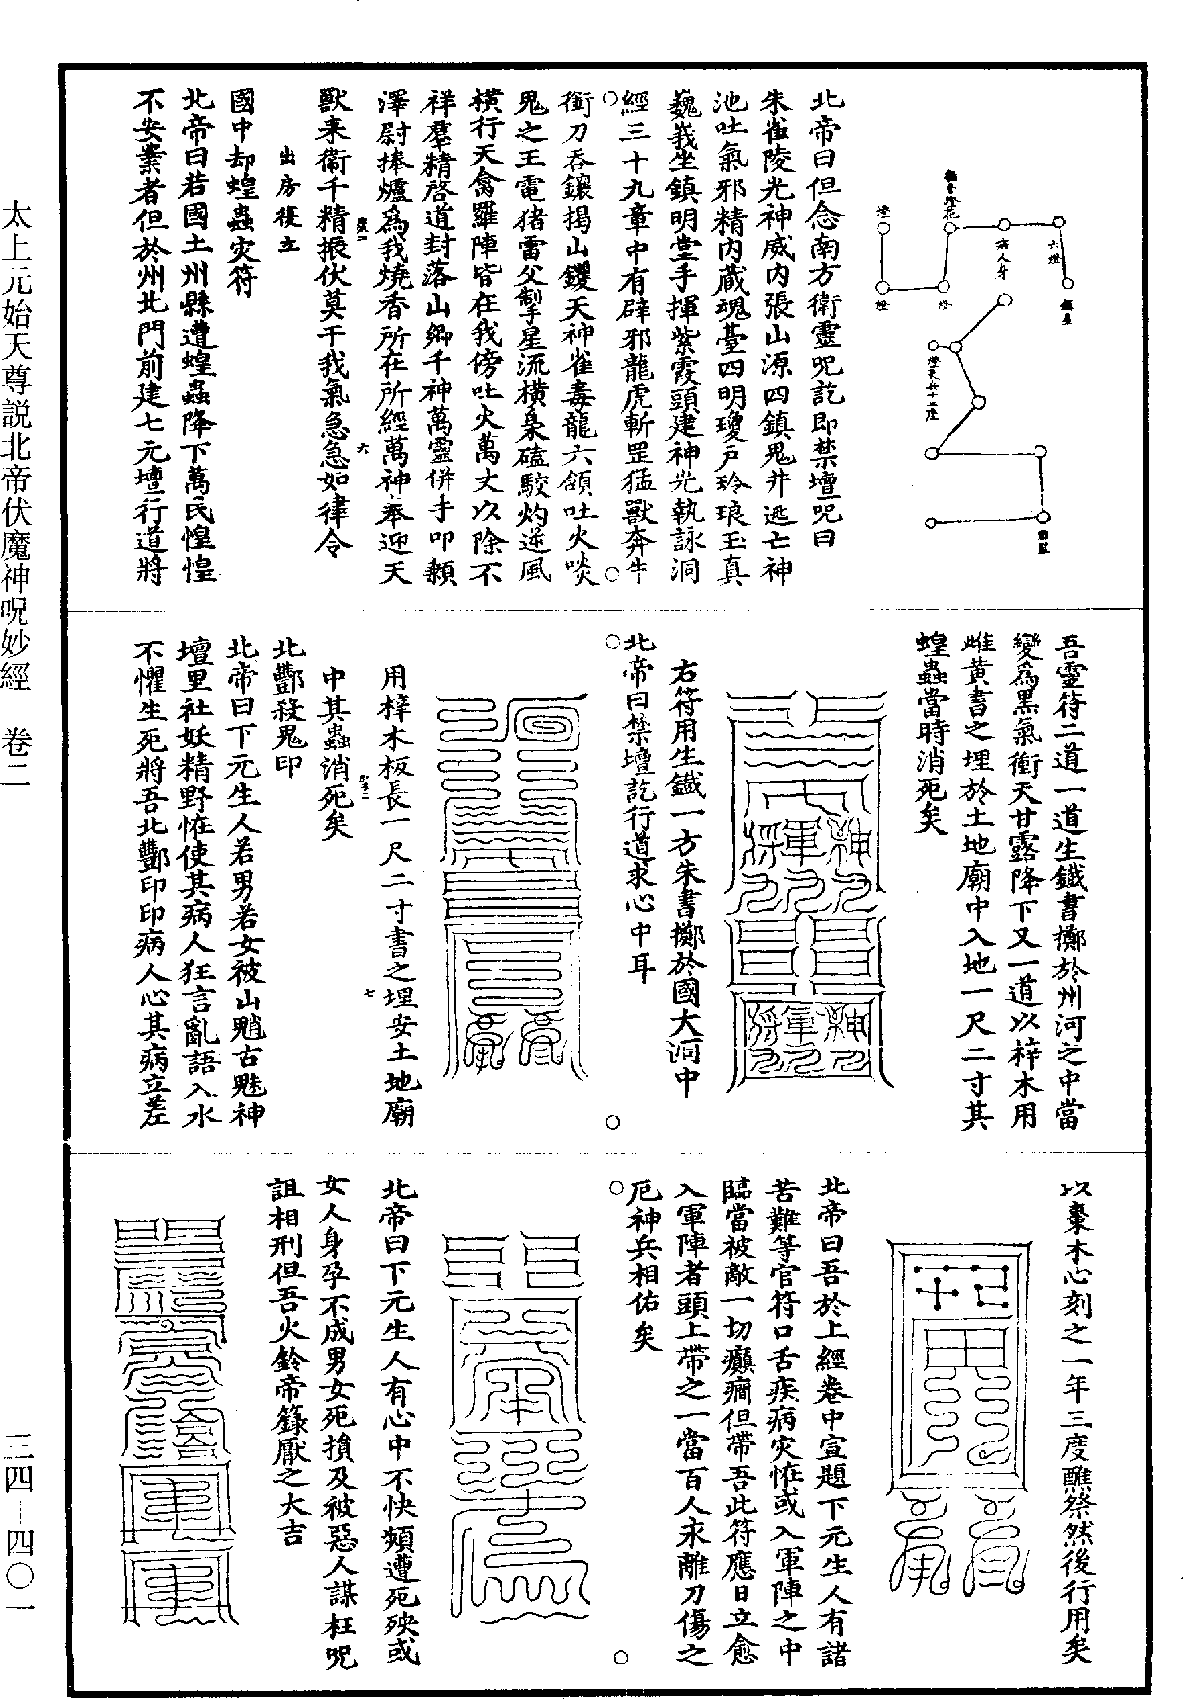 北帝曰但念南方衛靈呪訖即禁壇呪曰
朱雀陵光神威内張山源四鎮鬼井逃亡神
池吐氣邪精内藏魂臺四明瓊戶玲琅玉真
巍峩坐鎮明堂手揮紫霞頭建神光執詠洞
經三十九章中有辟邪龍虎斬罡猛獸奔牛
銜刀吞鑲揭山鑊天神雀毒龍六頷吐火啖
鬼之王電猪雷父掣星流横梟磕駮灼逆風
横行天禽羅陣皆在我傍吐火萬丈以除不
祥羣精啓道封落山鄉千神萬靈併手叩顙
澤尉捧爐爲我燒香所在所經萬神奉迎天
獸來衞千精振伏莫干我氣急急如律令
出房後立
國中却蝗蟲灾符
北帝曰若國土州縣遭蝗蟲降下萬民惶惶
不安業者但於州北門前建七元壇行道將
吾靈符二道一道生鐵書擲於州河之中當
變爲黑氣衝天甘露降下又一道以梓木用
雌黄書之埋於土地廟中入地一尺二寸其
蝗蟲當時消死矣
右符用生鐵一方朱書擲於國大河中
北帝曰禁壇訖行道求心中耳
用梓木板長一尺二寸書之埋安土地廟
中其蟲消死矣
北酆殺鬼印
北帝曰下元生人若男若女被山魈古魅神
壇里社妖精野恠使其病人狂言亂語入水
不懼生死將吾北酆印印病人心其病立差
以棗木心刻之一年三度醮祭然後行用矣
北帝曰吾於上經卷中宣題下元生人有諸
苦難等官符口舌疾病灾恠或入軍陣之中
臨當被敵一切癲癎但帶吾此符應日立愈
入軍陣者頭上帶之一當百人求離刀傷之
厄神兵相佑矣
北帝曰下元生人有心中不快頻遭死殃或
女人身孕不成男女死損及被惡人謀枉呪
詛相刑但吾火鈴帝籙厭之大吉
太上元始天尊説北帝伏魔神呪妙經 卷二
三四—四〇一